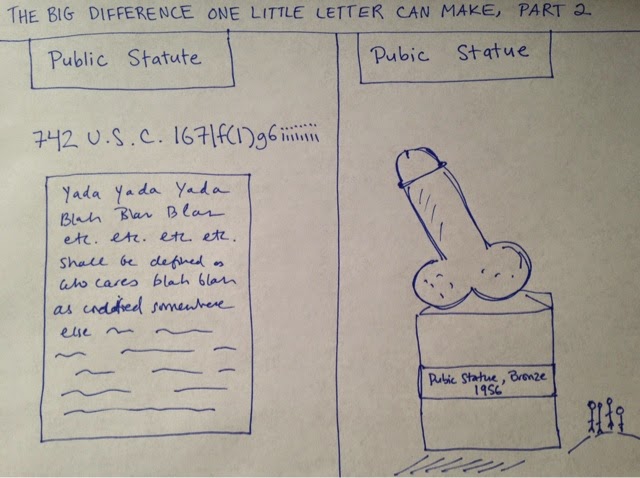 THE BIG DIFFERENCE ONE LITTLE LETTER CAN MAKE, PART 2
Public Statute
742 U.S.C. 167lf(1)g6iiiiiiii
Yada Yada Yada
Blah Blah Blah
etc. etc. etc. etc.
shall be defined as
who cares blah blah
as codified somewhere
else
Pubic Statue
Pubic Statue, Bronze
1956